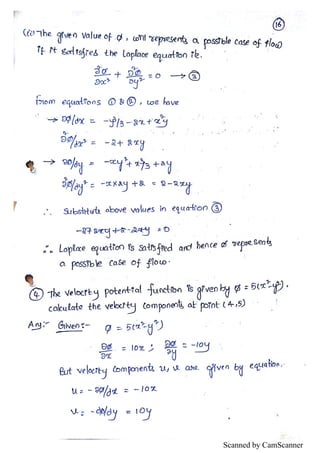 16
(ii) The given value of φ, will represents a possible case of flow
if it satisfies the Laplace equation ie.
∂²φ/∂x² + ∂²φ/∂y² = 0 → ③
From equations ① & ②, we have
→ ∂φ/dx = -y³/3 - 2x + x²y
∂²φ/dx² = -2 + 2xy
→ ∂φ/dy = -xy² + x³/3 + 2y
∂²φ/dy² = -2xy + 2 = 2 - 2xy
∴ Substitute above values in equation ③
-2+2xy+2-2xy = 0
∴ Laplace equation is satisfied and hence φ represents
a possible case of flow.
④ The velocity potential function is given by φ = 5(x²-y²).
calculate the velocity components at point (4,5)
Ans:- Given:- φ = 5(x²-y²)
∂φ/∂x = 10x ; ∂φ/∂y = -10y
But velocity components u, v are given by equation.
u = -∂φ/dx = -10x
v = -dφ/dy = 10y
Scanned by CamScanner